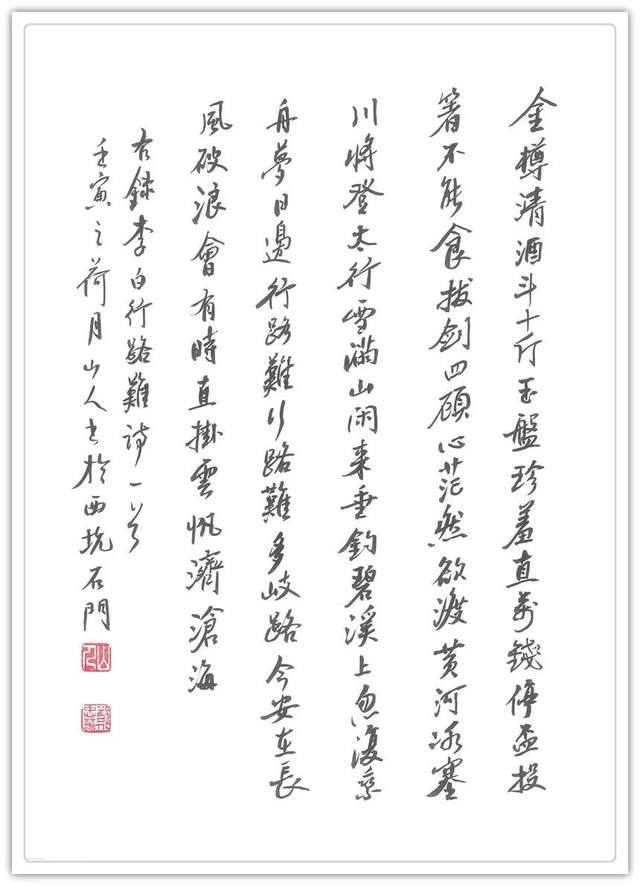 金樽清酒斗十斤玉盤珍羞直萬錢停盃投
箸不能食拔劍四顧心茫然欲渡黄河冰塞
川將登太行雪滿山闲来垂釣碧溪上忽復乘
舟夢日邊行路難行路難多岐路今安在長
風破浪會有時直掛雲帆濟滄海
右録李白行路難詩一首
壬寅之荷月山人书於西坑石門
山人